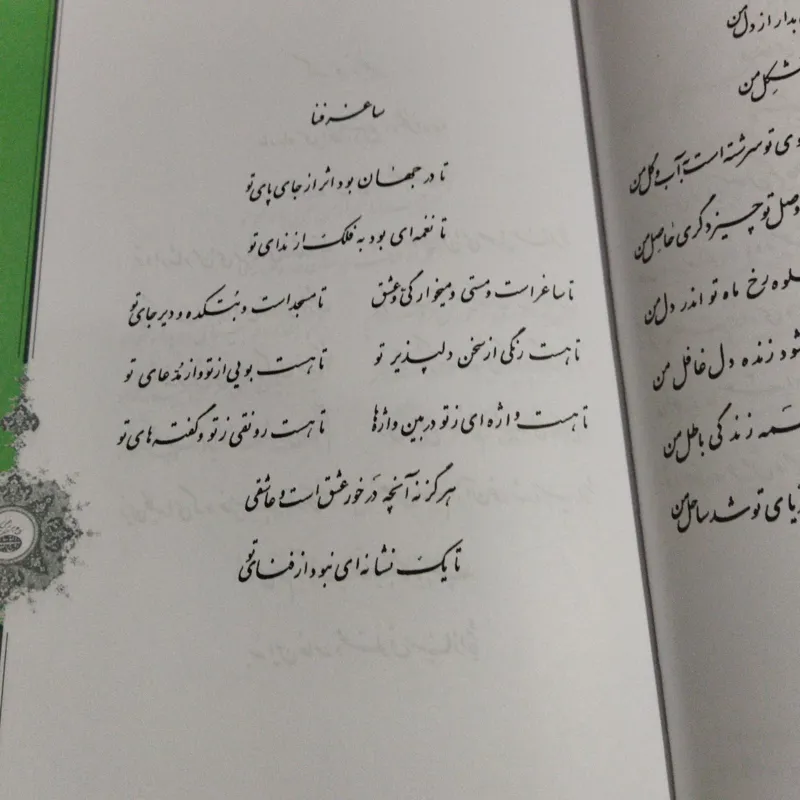 ساغر فنا
تا در جهان بود اثر از جای پای تو
تا نغمه‌ای بود به فلک از ندای تو
تا ساغر است و مستی و میخوارگی و عشق تا مسجد است و بتکده و دیر جای تو
تا هست رنگی از سخن دلپذیر تو تا هست بویی از تو و از مدّعای تو
تا هست واژه‌ای ز تو در بین واژه‌ها تا هست رونقی ز تو و گفته‌های تو
هرگز نه آنچه دَرخور عشق است و عاشقی
تا یک نشانه‌ای نبود از فنای تو
از دل من
مشکل من
تو سرشته است آب و گل من
وصل تو چیز دگری حاصل من
رخ ماه تو اندر دل من
شود زنده دل غافل من
همه زندگی باطل من
تو شد ساحل من